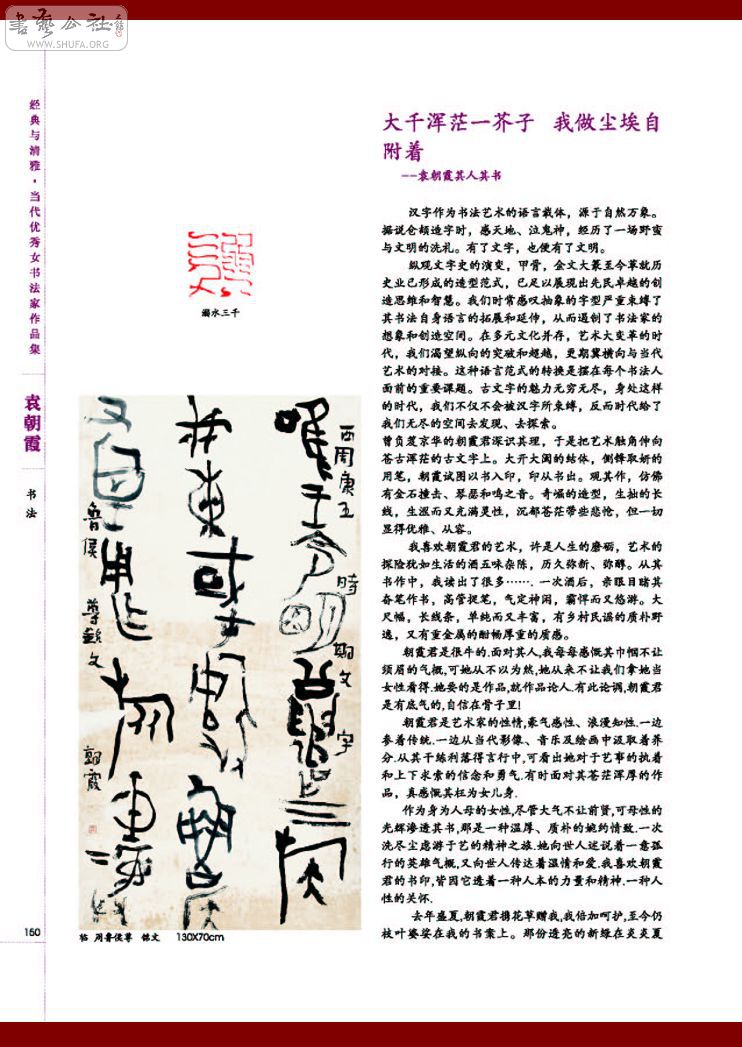 書艺公社
WWW.SHUFA.ORG
经典与清雅·当代优秀女书法家作品集
袁朝霞
书法
150
溺水三千
临 周鲁侯尊 铭文 130X70cm
大千浑茫一芥子 我做尘埃自
附着
--袁朝霞其人其书
汉字作为书法艺术的语言载体，源于自然万象。
据说仓颉造字时，感天地、泣鬼神，经历了一场野蛮
与文明的洗礼。有了文字，也便有了文明。
纵观文字史的演变，甲骨，金文大篆至今草就历
史业已形成的造型范式，已足以展现出先民卓越的创
造思维和智慧。我们时常感叹抽象的字型严重束缚了
其书法自身语言的拓展和延伸，从而遏制了书法家的
想象和创造空间。在多元文化并存，艺术大变革的时
代，我们渴望纵向的突破和超越，更期冀横向与当代
艺术的对接。这种语言范式的转换是摆在每个书法人
面前的重要课题。古文字的魅力无穷无尽，身处这样
的时代，我们不仅不会被汉字所束缚，反而时代给了
我们无尽的空间去发现、去探索。
曾负笈京华的朝霞君深识其理，于是把艺术触角伸向
苍古浑茫的古文字上。大开大阖的结体，侧锋取妍的
用笔，朝霞试图以书入印，印从书出。观其作，仿佛
有金石撞击、琴瑟和鸣之音。奇崛的造型，生拙的长
线，生涩而又充满灵性，沉郁苍茫带些悲怆，但一切
显得优雅、从容。
我喜欢朝霞君的艺术，许是人生的磨砺，艺术的
探险犹如生活的酒五味杂陈，历久弥新、弥醇。从其
书作中，我读出了很多……. 一次酒后，亲眼目睹其
奋笔作书，高管捉笔，气定神闲，霸悍而又悠游。大
尺幅，长线条，单纯而又丰富，有乡村民谣的质朴野
逸，又有重金属的酣畅厚重的质感。
朝霞君是很牛的.面对其人,我每每感慨其巾帼不让
须眉的气概,可她从不以为然,她从来不让我们拿她当
女性看得.她要的是作品,就作品论人.有此论调,朝霞君
是有底气的,自信在骨子里!
朝霞君是艺术家的性情,豪气感性、浪漫知性.一边
参着传统.一边从当代影像、音乐及绘画中汲取着养
分.从其干练利落得言行中,可看出她对于艺事的执着
和上下求索的信念和勇气.有时面对其苍茫浑厚的作
品，真感慨其枉为女儿身.
作为身为人母的女性,尽管大气不让前贤,可母性的
光辉渗透其书,那是一种温厚、质朴的婉约情致.一次
洗尽尘虑游于艺的精神之旅.她向世人述说着一意孤
行的英雄气概,又向世人传达着温情和爱.我喜欢朝霞
君的书印,皆因它透着一种人本的力量和精神.一种人
性的关怀.
去年盛夏,朝霞君携花草赠我,我倍加呵护,至今仍
枝叶婆娑在我的书案上。那份透亮的新绿在炎炎夏